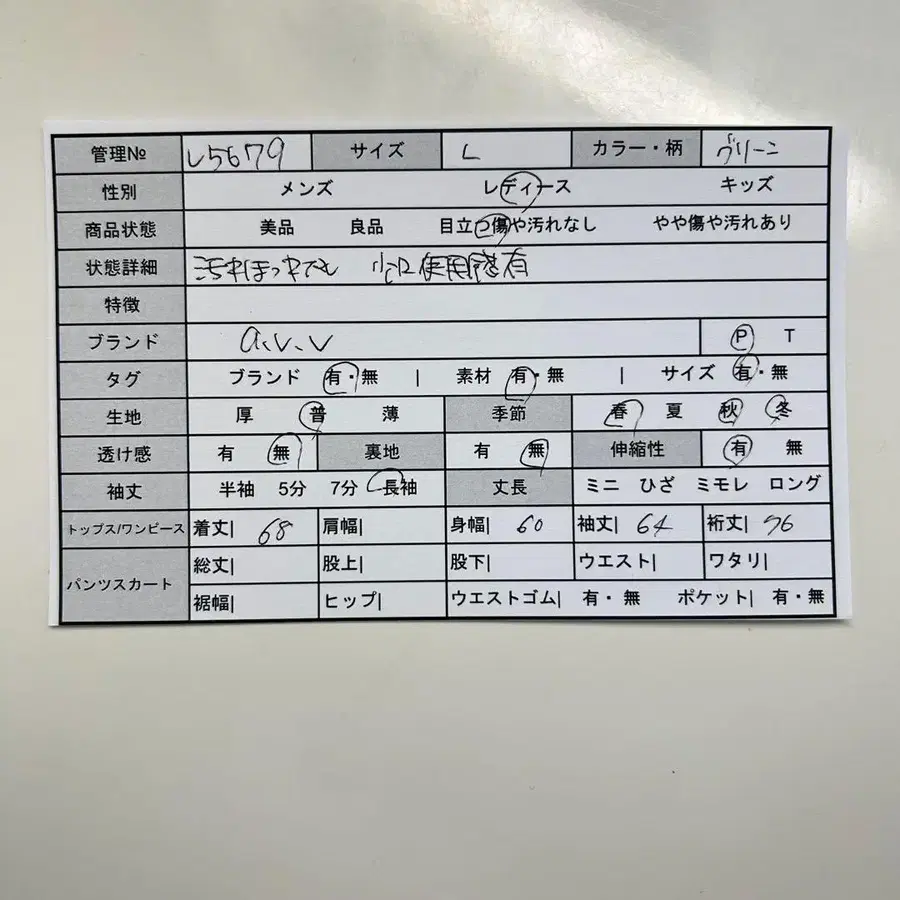 管理№ L5679 サイズ L カラー・柄 グリーン
性別 メンズ レディース キッズ
商品状態 美品 良品 目立つ傷や汚れなし やや傷や汚れあり
状態詳細 使用感有
特徴
ブランド a.v.v P T
タグ ブランド 有・無 | 素材 有・無 | サイズ 有・無
生地 厚 普 薄 季節 春 夏 秋 冬
透け感 有 無 裏地 有 無 伸縮性 有 無
袖丈 半袖 5分 7分 長袖 丈長 ミニ ひざ ミモレ ロング
トップス/ワンピース 着丈| 68 肩幅| 身幅| 60 袖丈| 64 裄丈| 76
パンツスカート 総丈| 股上| 股下| ウエスト| ワタリ|
裾幅| ヒップ| ウエストゴム| 有・無 ポケット| 有・無